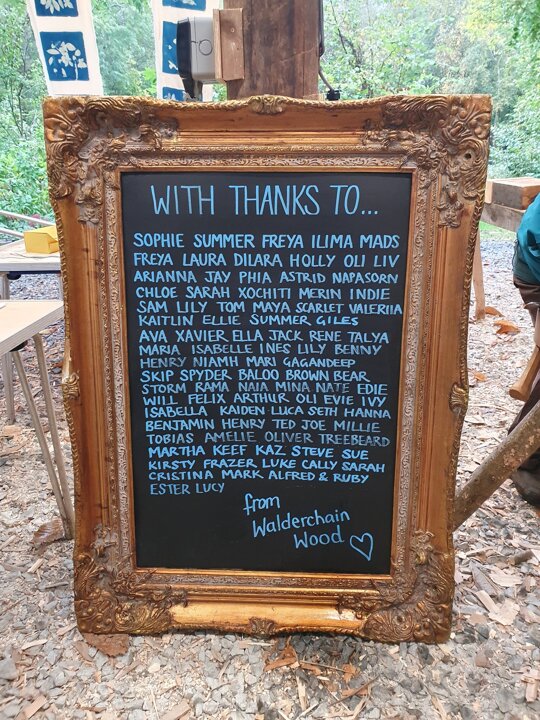 WITH THANKS TO...
SOPHIE SUMMER FREYA ILIMA MADS
FREYA LAURA DILARA HOLLY OLI LIV
ARIANNA JAY PHIA ASTRID NAPASORN
CHLOE SARAH XOCHITI MERIN INDIE
SAM LILY TOM MAYA SCARLET VALERIIA
KAITLIN ELLIE SUMMER GILES
AVA XAVIER ELLA JACK RENE TALYA
MARIA ISABELLE INES LILY BENNY
HENRY NIAMH MARI GAGANDEEP
SKIP SPYDER BALOO BROWN BEAR
STORM RAMA NAIA MINA NATE EDIE
WILL FELIX ARTHUR OLI EVIE IVY
ISABELLA KAIDEN LUCA SETH HANNA
BENJAMIN HENRY TED JOE MILLIE
TOBIAS AMELIE OLIVER TREEBEARD
MARTHA KEEF KAZ STEVE SUE
KIRSTY FRAZER LUKE CALLY SARAH
CRISTINA MARK ALFRED & RUBY
ESTER LUCY
from
Walderchain
Wood ♡